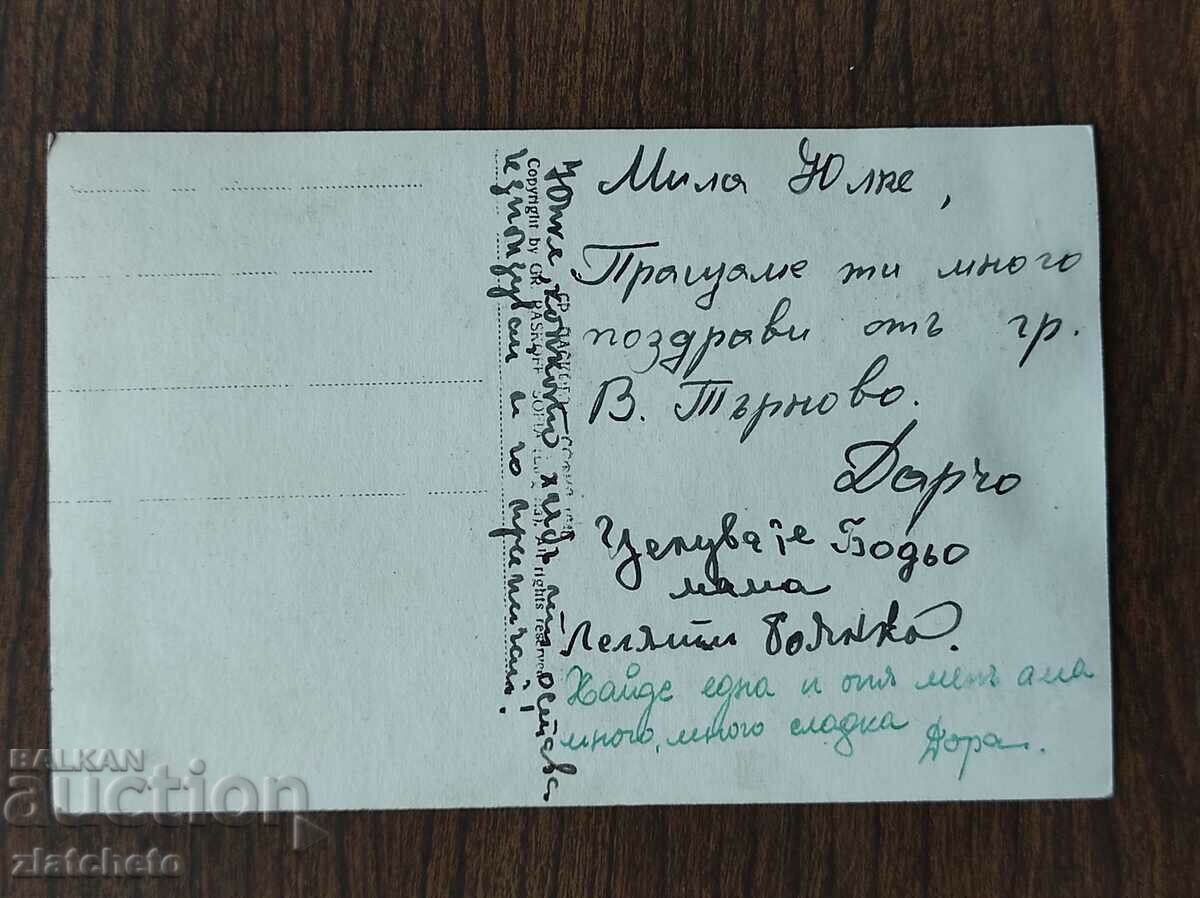 Мила Юлке,
Пращаме ти много
поздрави отъ гр.
В. Търново.
Дарчо
Целува те Бодьо
мама
Бояnка.
Хайде една и отъ менъ ама
много, много сладка
Дора.
Юлке, колкото хлѣбъ ти остава
и го
Copyright by GR. PASKOFF SOFIA All rights reserved
BALKAN
auction
zlatcheto